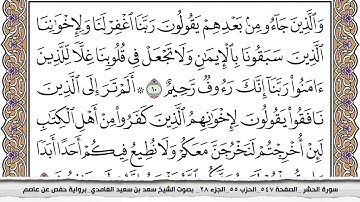 وَالَّذِينَ جَاءُو مِنۢ بَعْدِهِمْ يَقُولُونَ رَبَّنَا اغْفِرْ لَنَا وَلِإِخْوَانِنَا
الَّذِينَ سَبَقُونَا بِالْإِيمَٰنِ وَلَا تَجْعَلْ فِي قُلُوبِنَا غِلًّا لِّلَّذِينَ
ءَامَنُوا رَبَّنَا إِنَّكَ رَءُوفٌ رَّحِيمٌ ١٠ ۞ أَلَمْ تَرَ إِلَى الَّذِينَ
نَافَقُوا يَقُولُونَ لِإِخْوَانِهِمُ الَّذِينَ كَفَرُوا مِنْ أَهْلِ الْكِتَٰبِ
لَئِنْ أُخْرِجْتُمْ لَنَخْرُجَنَّ مَعَكُمْ وَلَا نُطِيعُ فِيكُمْ أَحَدًا أَبَدًا
سورة الحشر _الصفحة ٥٤٧_الحزب ٥٥_الجزء ٢٨_ بصوت الشيخ سعد بن سعيد الغامدي_برواية حفص عن عاصم